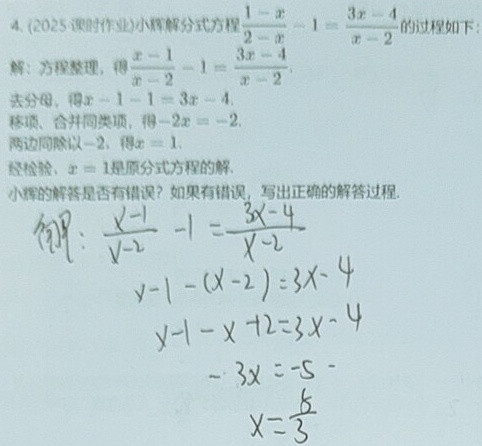 4. (2025·课时作业)小辉解分式方程\frac{1-x}{2-x}-1=\frac{3x-4}{x-2}的过程如下:
解:方程整理,得\frac{x-1}{x-2}-1=\frac{3x-4}{x-2}.
去分母,得x-1-1=3x-4.
移项、合并同类项,得-2x=-2.
两边同除以-2,得x=1.
经检验,x=1是原分式方程的解.
小辉的解答是否有错误?如果有错误,写出正确的解答过程.
解:\frac{x-1}{x-2}-1=\frac{3x-4}{x-2}
x-1-(x-2)=3x-4
x-1-x+2=3x-4
-3x=-5
x=\frac{5}{3}